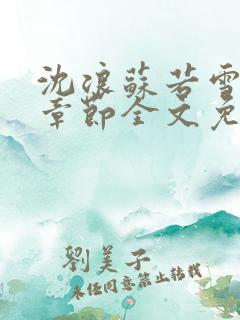 沈浪蘇若雪
章節全文免
劉美子
未经同意禁止转载